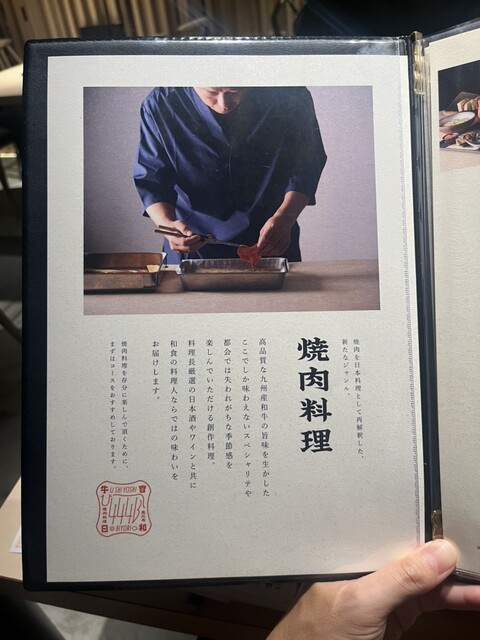 焼肉を日本料理として再解釈した、
新たなジャンル。
焼肉料理
高品質な九州産和牛の旨味を生かした
ここでしか味わえないスペシャリテや
都会では失われがちな季節感を
楽しんでいただける創作料理。
料理長厳選の日本酒やワインと共に
和食の料理人ならではの味わいを
お届けします。
焼肉料理を存分に楽しんで頂くために、
まずはコースをおすすめしております。
USHIYOSHI
BIYORI
牛
日
和